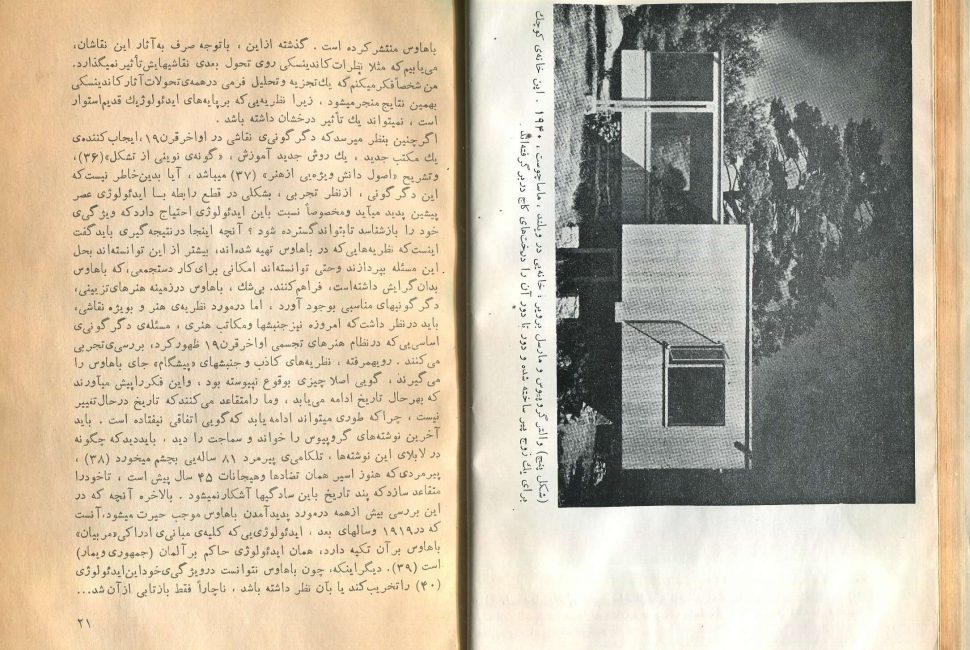 باهاوس منتشر کرده است . گذشته ازاین ، باتوجه صرف به‌آثار این نقاشان،
می‌یابیم‌که مثلا نظرات‌کاندینسکی روی تحول بعدی نقاشیهایش‌تأثیر نمیگذارد.
من شخصاً فکر میکنم‌که یك‌تجزیه و تحلیل فرمی درهمه‌ی تحولات‌آثار کاندینسکی
بهمین نتایج منجر میشود ، زیرا نظریه‌یی‌که برپایه‌های ایدئولوژیك قدیم‌استوار
است ، نمیتواند یك تأثیر درخشان داشته باشد .
اگرچنین بنظر میرسدکه دگرگونی‌ی نقاشی در اواخرقرن۱۹،ایجاب‌کننده‌ی
یك مکتب جدید ، یك روش جدید آموزش ، «گونه‌ی نوینی از تشکل»(۳۶)،
وتشریح «اصول دانش ویژه‌یی ازهنر» (۳۷) میباشد ، آیا بدین‌خاطر نیست‌که
این دگرگونی ، ازنظر تجربی ، بشکلی در قطع رابطه بـا ایدئولوژی عصر
پیشین پدید میآید ومخصوصاً نسبت باین ایدئولوژی احتیاج داردکه ویژگی‌ی
خود را بازشناسد تابتواندگسترده شود ؟ آنچه اینجا درنتیجه‌گیری بایدگفت
اینست‌که نظریه‌هایی‌که در باهاوس تهیه شده‌اند، بیشتر از این توانسته‌اند بحل
این مسئله بپردازند وحتی توانسته‌اند امکانی برای‌کار دستجمعی،که باهاوس
بدان‌گرایش داشته‌است، فراهم‌کنند. بی‌شك ، باهاوس درزمینه هنرهای‌تزیینی،
دگرگونیهای مناسبی بوجود آورد . اما درمورد نظریه‌ی هنر و بویژه نقاشی،
باید درنظر داشت‌که امروزه نیز جنبشها ومکاتب هنری ، مسئله‌ی دگرگونی‌ی
اساسی‌یی‌که درنظام هنرهای تجسمی اواخرقرن۱۹ ظهورکرد، بررسی‌ی‌تجربی
می‌کنند . رویهمرفته ، نظریه‌های کاذب وجنبشهای «پیشگام» جای باهاوس را
می‌گیرند ، گویی اصلا چیزی بوقوع نپیوسته بود ، واین فکررا پیش میآورند
که بهرحال تاریخ ادامه می‌یابد ، وما رامتقاعد می‌کنندکه تاریخ درحال‌تغییر
نیست ، چراکه طوری میتواند ادامه‌یابد که‌گویی اتفاقی نیفتاده است . باید
آخرین نوشته‌های گروپیوس را خواند و سماجت را دید ، بایددیدکه چگونه
در لابلای این نوشته‌ها ، تلکامی‌ی پیرمرد ۸۱ ساله‌یی بچشم میخورد (۳۸) ،
پیرمردی‌که هنوز اسیر همان تضادها وهیجانات ۴۵ سال پیش است ، تاخودرا
متقاعد سازدکه پند تاریخ باین سادگیها آشکارنمیشود . بالاخره آنچه که در
این بررسی بیش ازهمه درمورد پدیدآمدن باهاوس موجب حیرت میشود،آنست
که در۱۹۱۹ وسالهای بعد ، ایدئولوژی‌یی‌که کلیه‌ی مبانی‌ی ادراکی«مربیان»
باهاوس برآن تکیه دارد، همان ایدئولوژی حاکم بر آلمان (جمهوری ویمار)
است (۳۹). دیگر اینکه، چون باهاوس نتوانست درویژگی‌ی‌خود این‌ایدئولوژی
(۴۰) راتخریب‌کند یا بآن نظر داشته باشد ، ناچاراً فقط بازتابی ازآن شد...
۲۱
(شکل پنج) والتر گروپیوس و مارسل برویر : خانه‌یی در ویلند ، ماساچوست، ۱۹۴۰ . این خانه‌ی کوچك
برای یك زوج پیر ساخته شده و دور تا دور آن را درخت‌های کاج دربرگرفته‌اند .